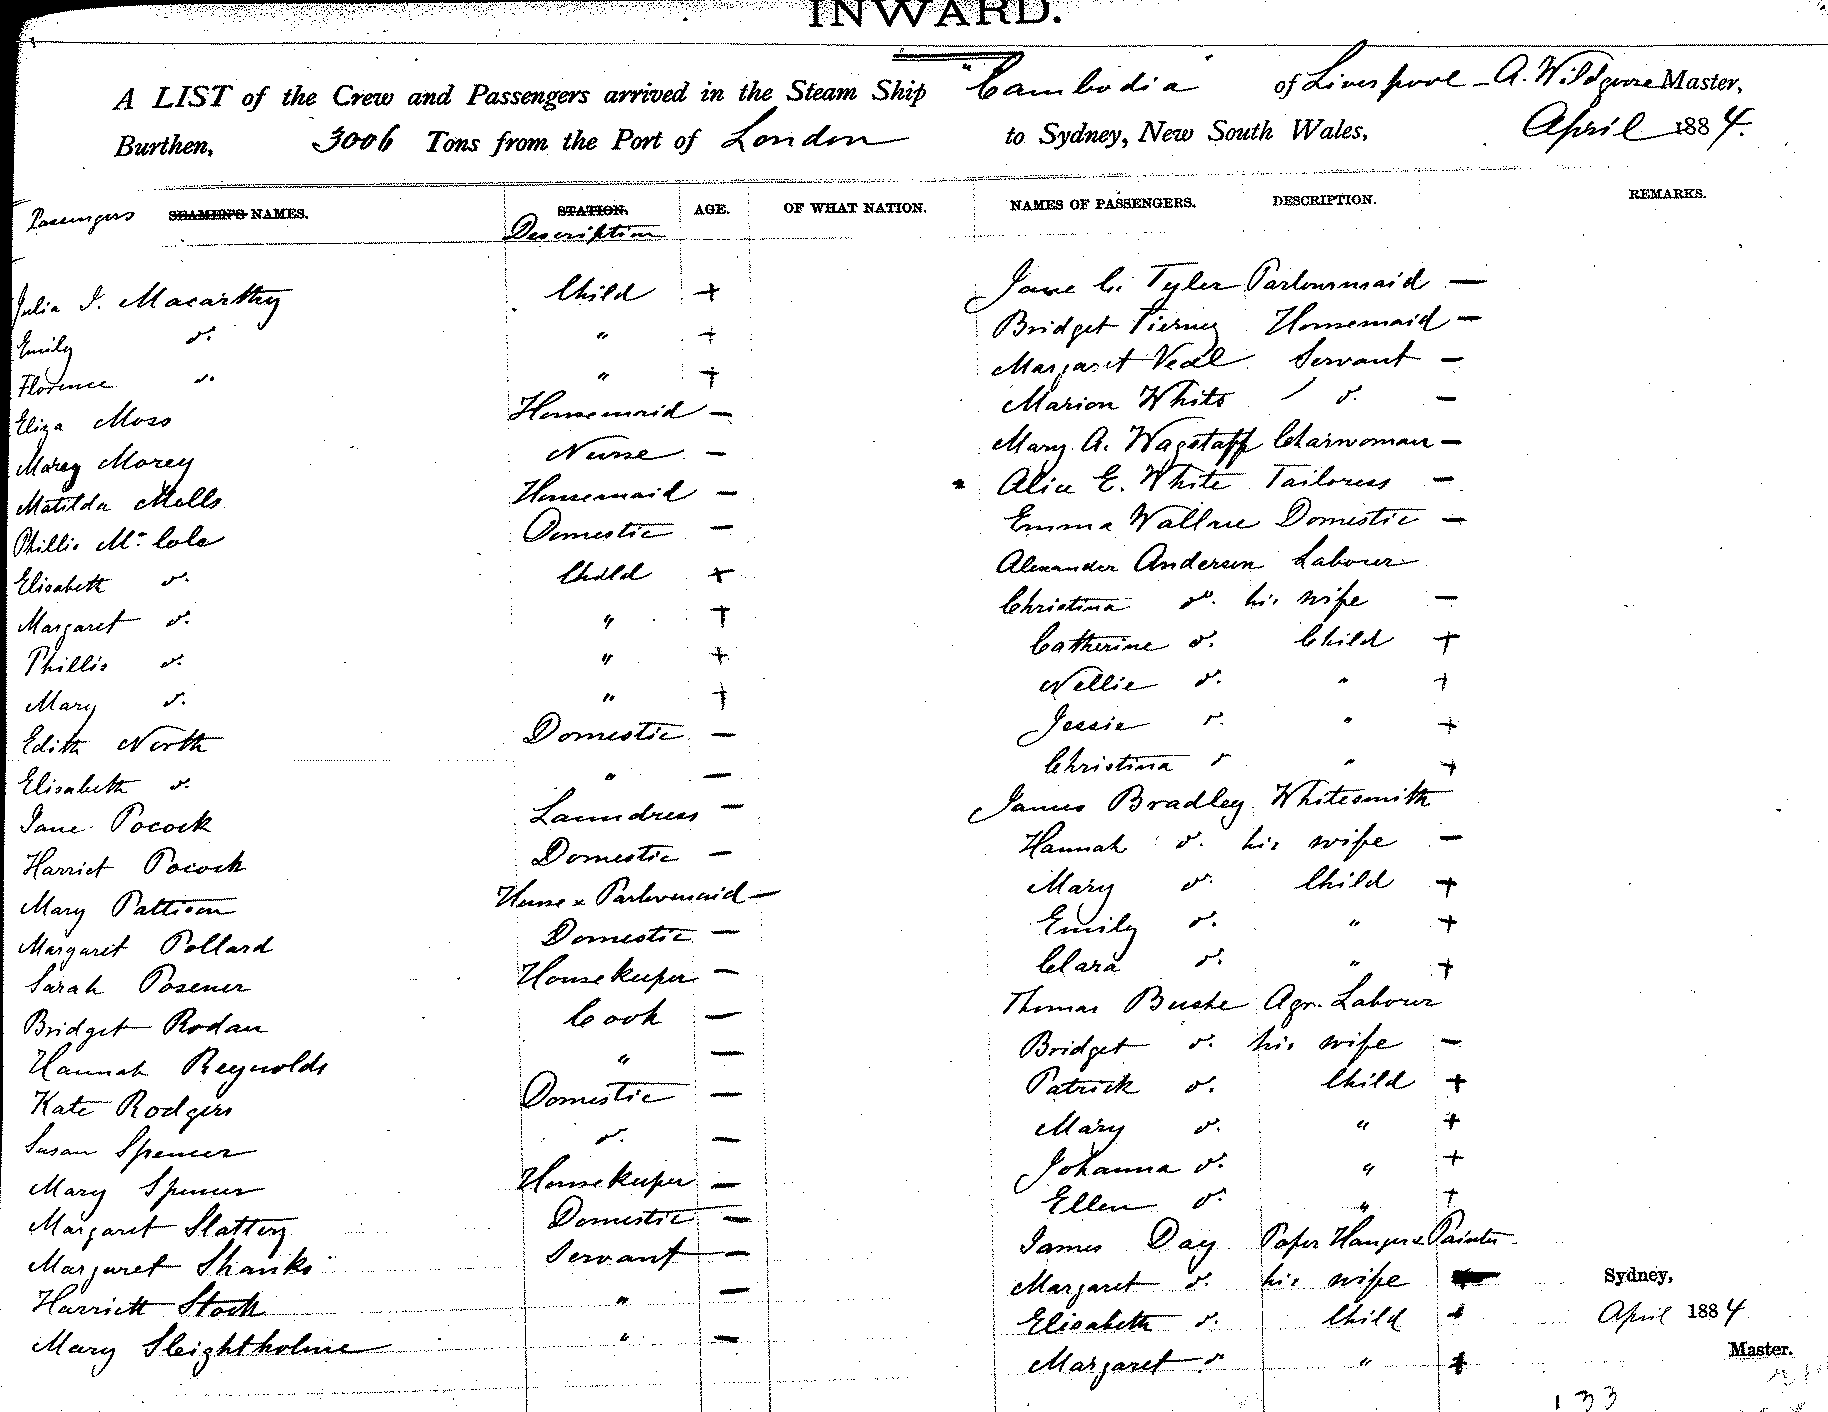 INWARD.
A LIST of the Crew and Passengers arrived in the Steam Ship "Cambodia" of Liverpool - A. Wildgoose Master,
Burthen, 3006 Tons from the Port of London to Sydney, New South Wales, April 1884.
Passengers SEAMEN'S NAMES. STATION. AGE. OF WHAT NATION. NAMES OF PASSENGERS. DESCRIPTION. REMARKS.
Description
Julia I. Macarthy Child +
Emily do. " +
Florence do. " +
Eliza Moss Housemaid —
Marey Morey Nurse —
Matilda Mells Housemaid —
Phillis McCole Domestic —
Elisabeth do. Child +
Margaret do. " +
Phillis do. " +
Mary do. " +
Edith North Domestic —
Elisabeth do. " —
Jane Pocock Laundress —
Harriet Pocock Domestic —
Mary Pattison House & Parlourmaid —
Margaret Pollard Domestic —
Sarah Posener Housekeeper —
Bridget Rodan Cook —
Hannah Reynolds " —
Kate Rodgers Domestic —
Susan Spencer do. —
Mary Spencer Housekeeper —
Margaret Slattery Domestic —
Margaret Shanks Servant —
Harriett Stock " —
Mary Sleightholme " —
Jane C. Tyler Parlourmaid —
Bridget Tierney Housemaid —
Margaret Veal Servant —
Marion White do. —
Mary A. Wagstaff Charwoman —
Alice E. White Tailoress —
Emma Wallace Domestic —
Alexander Anderson Labour
Christina do. his wife —
Catherine do. Child +
Nellie do. " +
Jessie do. " +
Christina do. " +
James Bradley Whitesmith
Hannah do. his wife —
Mary do. Child +
Emily do. " +
Clara do. " +
Thomas Burke Agr. Labour
Bridget do. his wife —
Patrick do. Child +
Mary do. " +
Johanna do. " +
Ellen do. " +
James Day Paper Hanger & Painter
Margaret do. his wife —
Elisabeth do. Child +
Margaret do. " +
Sydney,
April 1884
Master.
133